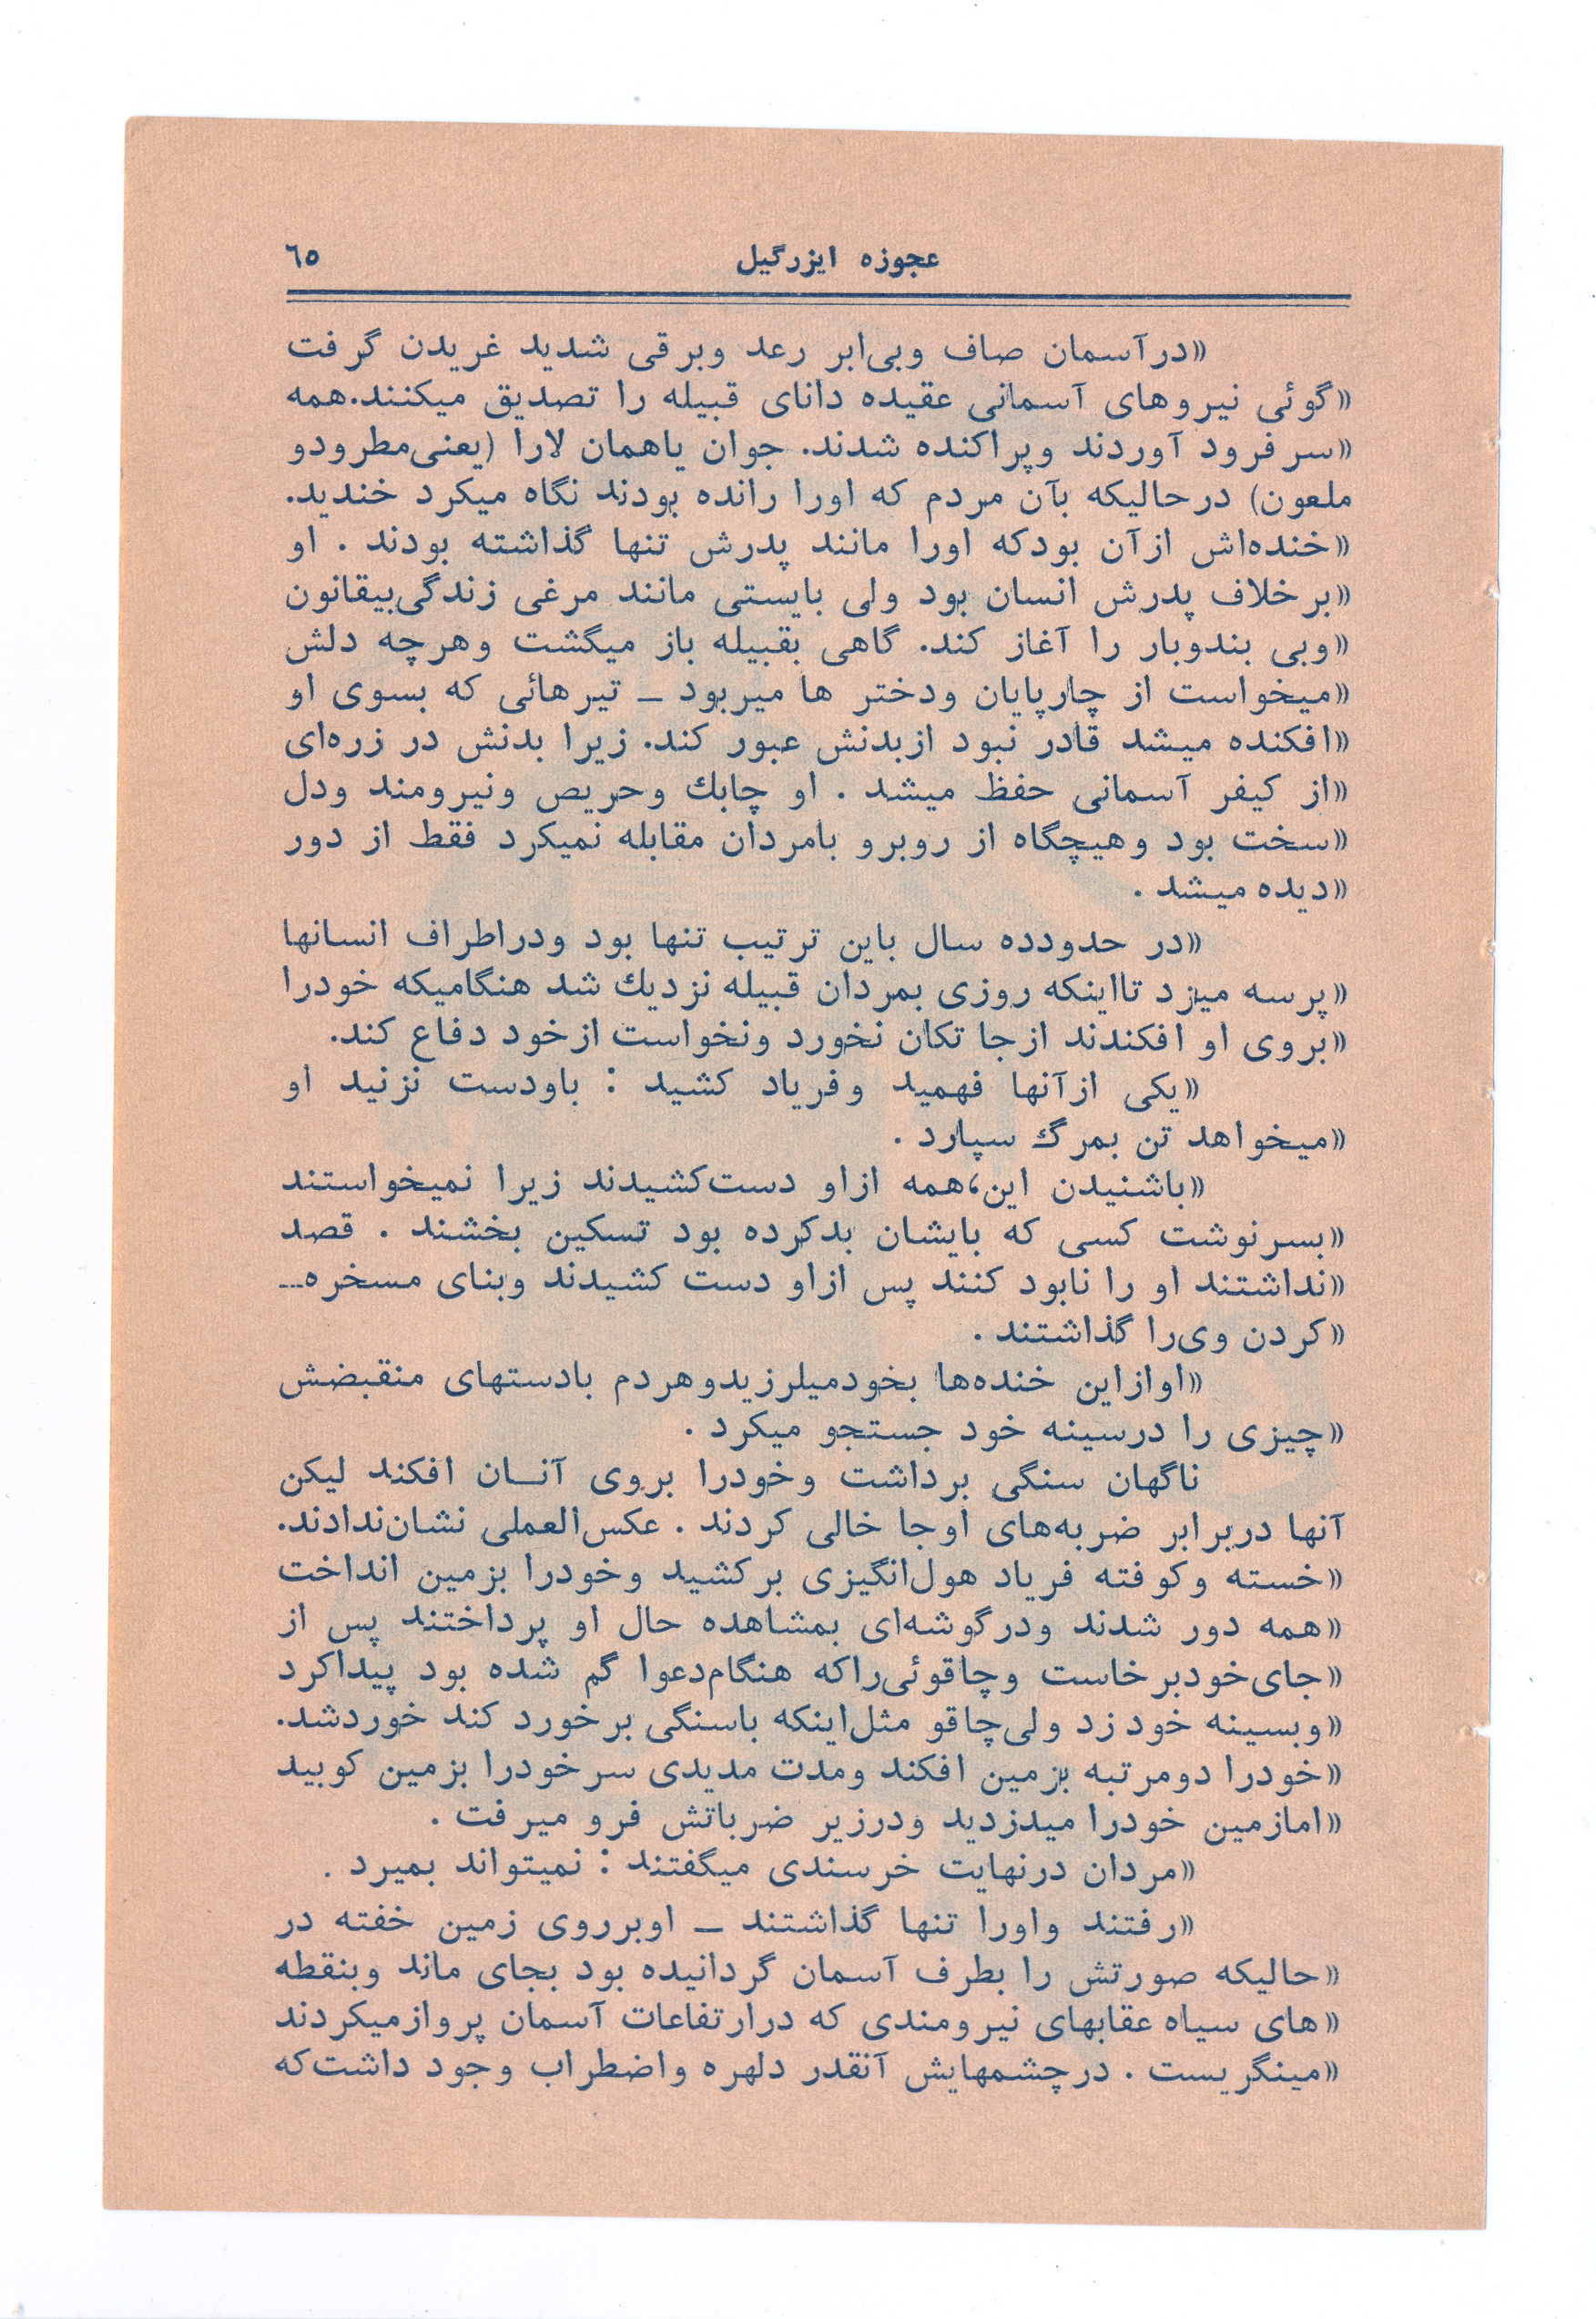 عجوزه ایزرگیل ٦٥
«درآسمان صاف وبی‌ابر رعد وبرقی شدید غریدن گرفت
«گوئی نیروهای آسمانی عقیده دانای قبیله را تصدیق میکنند.همه
«سر فرود آوردند وپراکنده شدند. جوان یاهمان لارا (یعنی‌مطرودو
ملعون) درحالیکه بآن مردم که اورا رانده بودند نگاه میکرد خندید.
«خنده‌اش ازآن بودکه اورا مانند پدرش تنها گذاشته بودند . او
«برخلاف پدرش انسان بود ولی بایستی مانند مرغی زندگی‌بیقانون
«وبی بندوبار را آغاز کند. گاهی بقبیله باز میگشت وهرچه دلش
«میخواست از چارپایان ودختر ها میربود ـ تیرهائی که بسوی او
«افکنده میشد قادر نبود ازبدنش عبور کند. زیرا بدنش در زره‌ای
«از کیفر آسمانی حفظ میشد . او چابك وحریص ونیرومند ودل
«سخت بود وهیچگاه از روبرو بامردان مقابله نمیکرد فقط از دور
«دیده میشد .
«در حدودده سال باین ترتیب تنها بود ودراطراف انسانها
«پرسه میزد تااینکه روزی بمردان قبیله نزدیك شد هنگامیکه خودرا
«بروی او افکندند ازجا تکان نخورد ونخواست ازخود دفاع کند.
«یکی ازآنها فهمید وفریاد کشید : باودست نزنید او
«میخواهد تن بمرگ سپارد .
«باشنیدن این،همه ازاو دست‌کشیدند زیرا نمیخواستند
«بسرنوشت کسی که بایشان بدکرده بود تسکین بخشند . قصد
«نداشتند او را نابود کنند پس ازاو دست کشیدند وبنای مسخره‌ـ
«کردن وی‌را گذاشتند .
«اوازاین خنده‌ها بخودمیلرزیدوهردم بادستهای منقبضش
«چیزی را درسینه خود جستجو میکرد .
ناگهان سنگی برداشت وخودرا بروی آنـان افکند لیکن
آنها دربرابر ضربه‌های اوجا خالی کردند . عکس‌العملی نشان‌ندادند.
«خسته وکوفته فریاد هول‌انگیزی برکشید وخودرا بزمین انداخت
«همه دور شدند ودرگوشه‌ای بمشاهده حال او پرداختند پس از
«جای‌خودبرخاست وچاقوئی‌راکه هنگام‌دعوا گم شده بود پیداکرد
«وبسینه خود زد ولی‌چاقو مثل‌اینکه باسنگی برخورد کند خوردشد.
«خودرا دومرتبه بزمین افکند ومدت مدیدی سرخودرا بزمین کوبید
«امازمین خودرا میدزدید ودرزیر ضرباتش فرو میرفت .
«مردان درنهایت خرسندی میگفتند : نمیتواند بمیرد .
«رفتند واورا تنها گذاشتند ـ اوبرروی زمین خفته در
«حالیکه صورتش را بطرف آسمان گردانیده بود بجای ماند وبنقطه
«های سیاه عقابهای نیرومندی که درارتفاعات آسمان پروازمیکردند
«مینگریست . درچشمهایش آنقدر دلهره واضطراب وجود داشت‌که